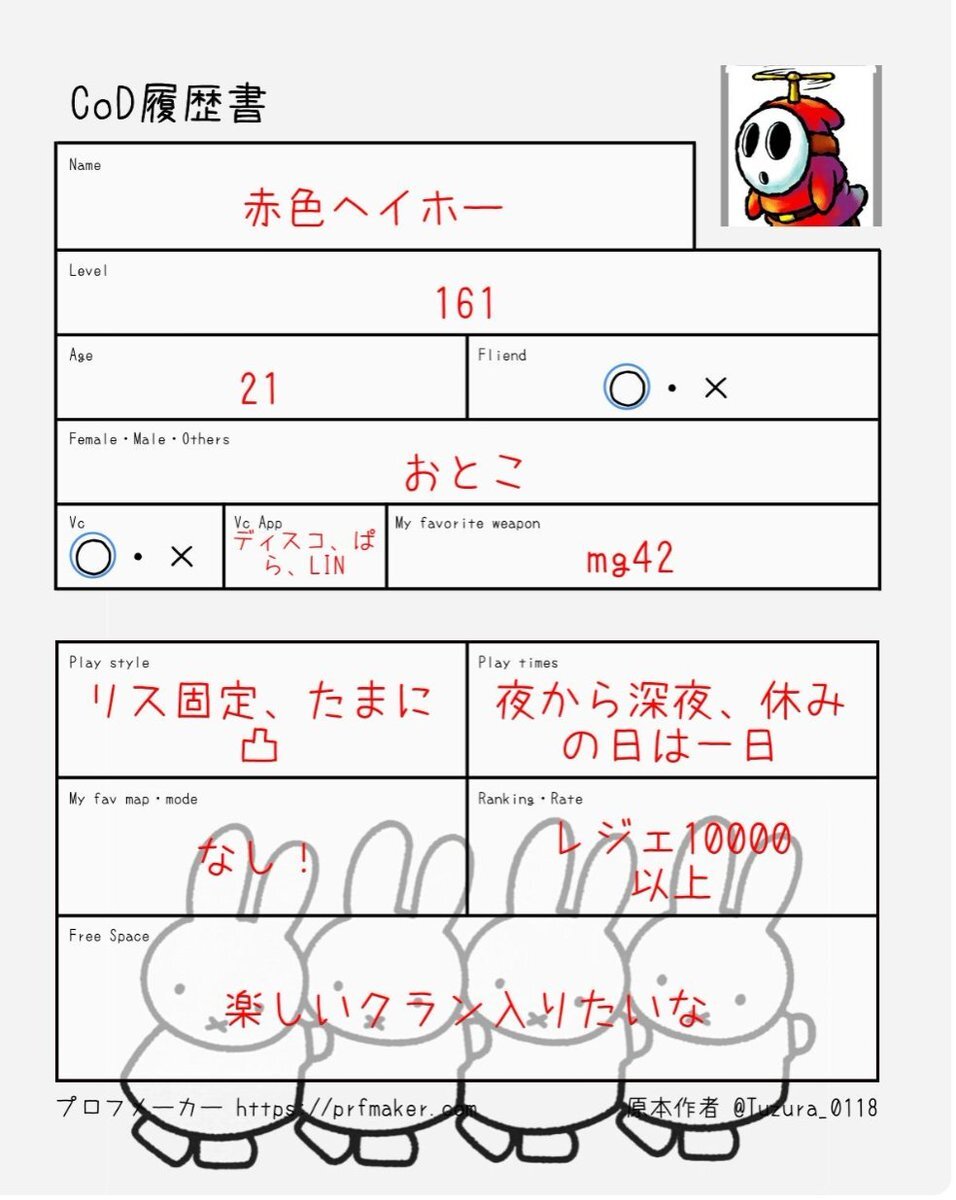 CoD履歴書
Name
赤色ヘイホー
Level
161
Age
21
Fliend
◯・×
Female・Male・Others
おとこ
Vc
◯・×
Vc App
ディスコ、ぱ
ら、LIN
My favorite weapon
mg42
Play style
リス固定、たまに
凸
Play times
夜から深夜、休み
の日は一日
My fav map・mode
なし！
Ranking・Rate
レジェ10000
以上
Free Space
楽しいクラン入りたいな
プロフメーカー https://prfmaker.com
原本作者 @Tuzura_0118